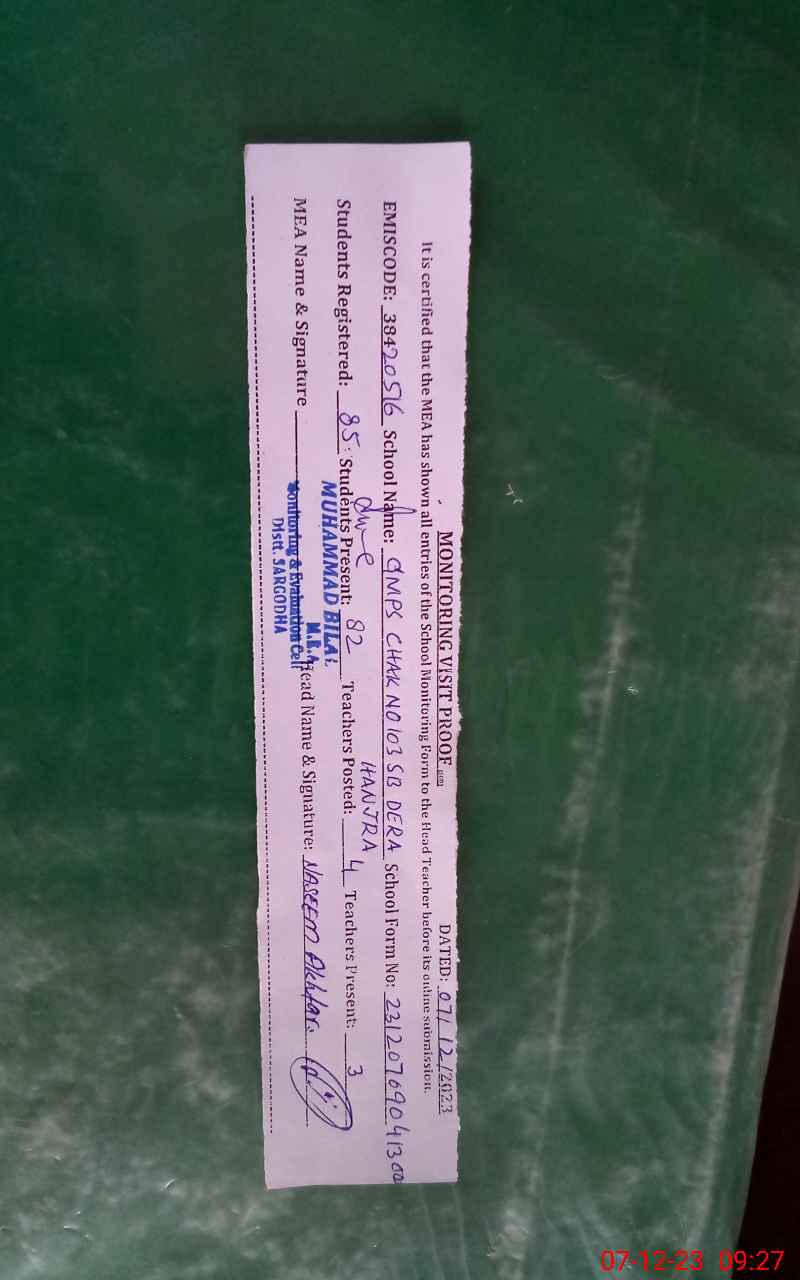 MONITORING VISIT PROOF DATED: 07/12/2023
It is certified that the MEA has shown all entries of the School Monitoring Form to the Head Teacher before its online submission.
EMISCODE: 38420516 School Name: GMPS CHAK NO 103 SB DERA HANJRA School Form No: 231207090413
Students Registered: 85 Students Present: 82 Teachers Posted: 4 Teachers Present: 3
MEA Name & Signature Head Name & Signature: NASEEM Akhtar
MUHAMMAD BILAL
M.E.A
Monitoring & Evaluation Cell
Distt. SARGODHA
07-12-23 09:27